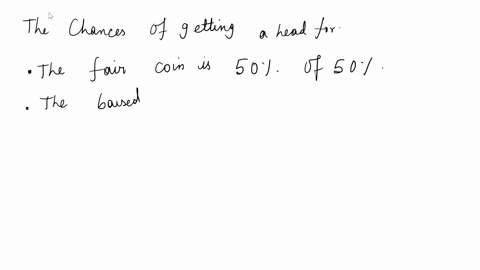 The Chances of getting a head for
• The fair coin is 50%. of 50%.
• The baised